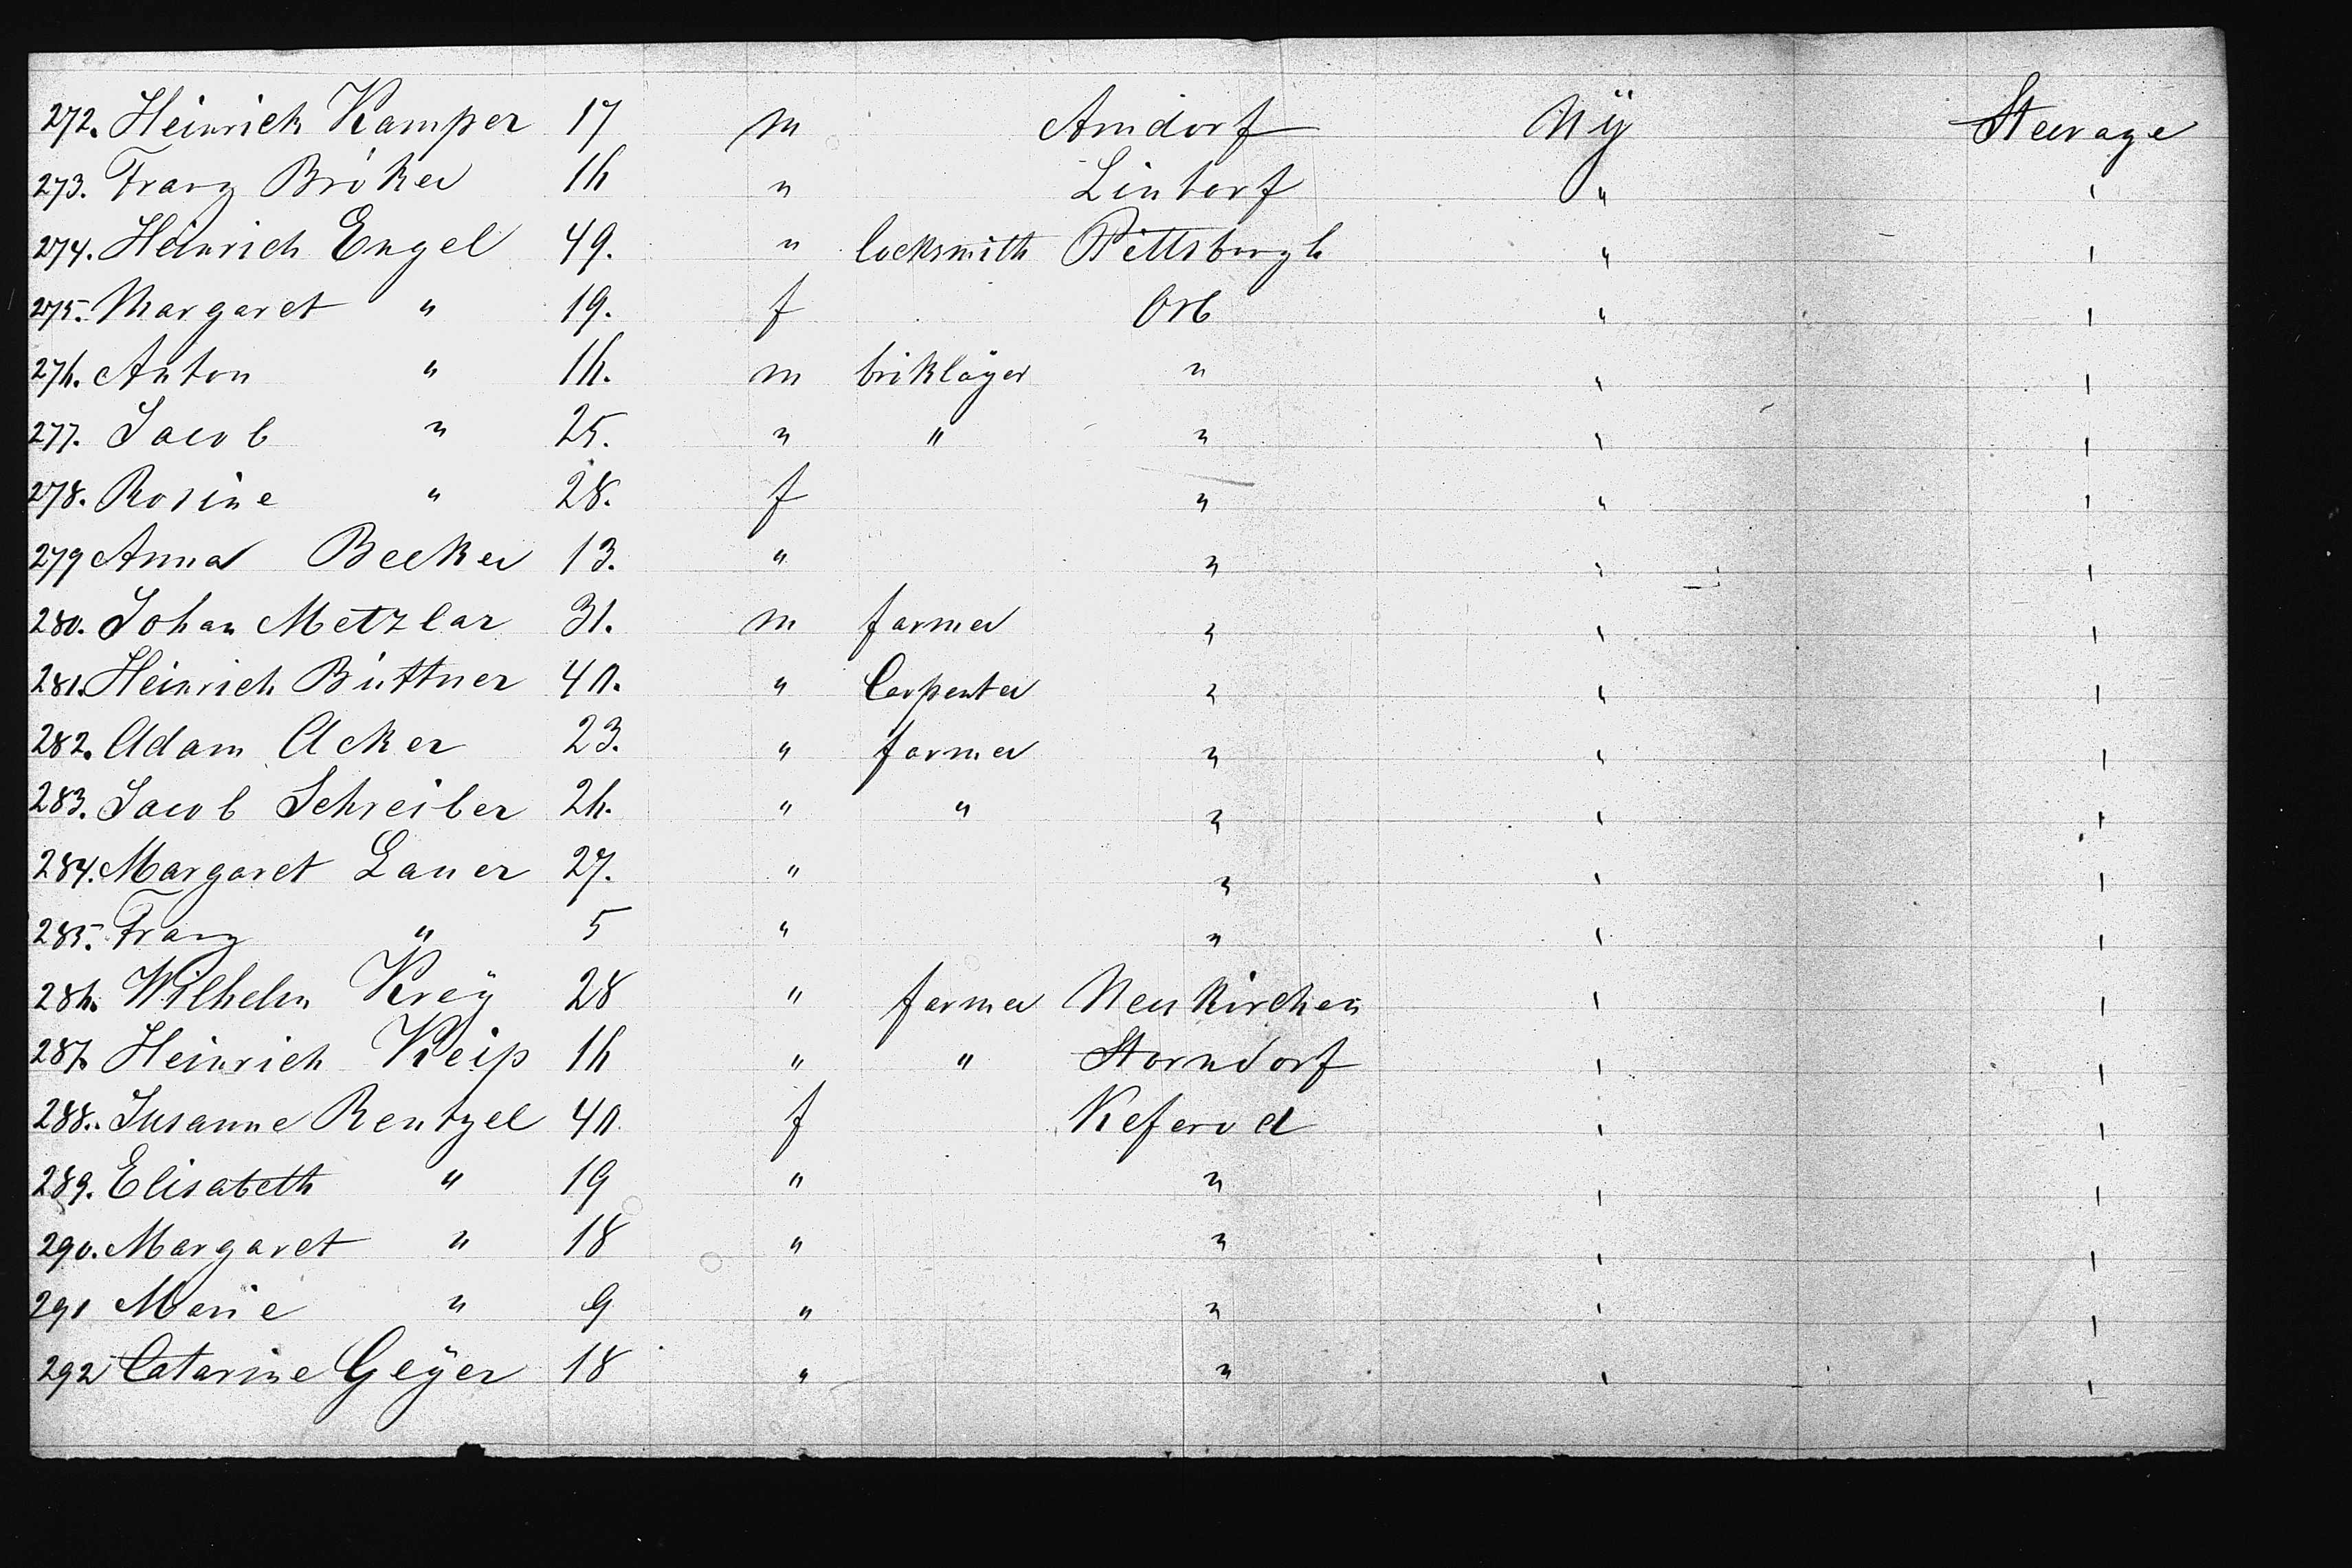 272. Heinrich Kamper 17 m Arndorf N ÿ Steerage
273. Franz Bröker 16 " Lintorf " "
274. Heinrich Engel 49. " locksmith Pittsburgh " "
275. Margaret " 19. f Orb " "
276. Anton " 16. m brikläyer " " "
277. Jacob " 25. " " " " "
278. Rosine " 28. f " " "
279 Anna Becker 13. " " " "
280. Johan Metzlar 31. m farmer " " "
281. Heinrich Büttner 40. " Carpenter " " "
282. Adam Acker 23. " farmer " " "
283. Jacob Schreiber 26. " " " " "
284. Margaret Lauer 27. " " " "
285. Franz " 5 " " " "
286. Wilhelm Kreÿ 28 " farmer Neukirchen " "
287. Heinrich Keip 16 " " Storndorf " "
288. Susanne Rentzel 40. f Keferod " "
289. Elisabeth " 19 " " " "
290. Margaret " 18 " " " "
291 Marie " 9 " " " "
292 Catarine Geÿer 18 " " " "